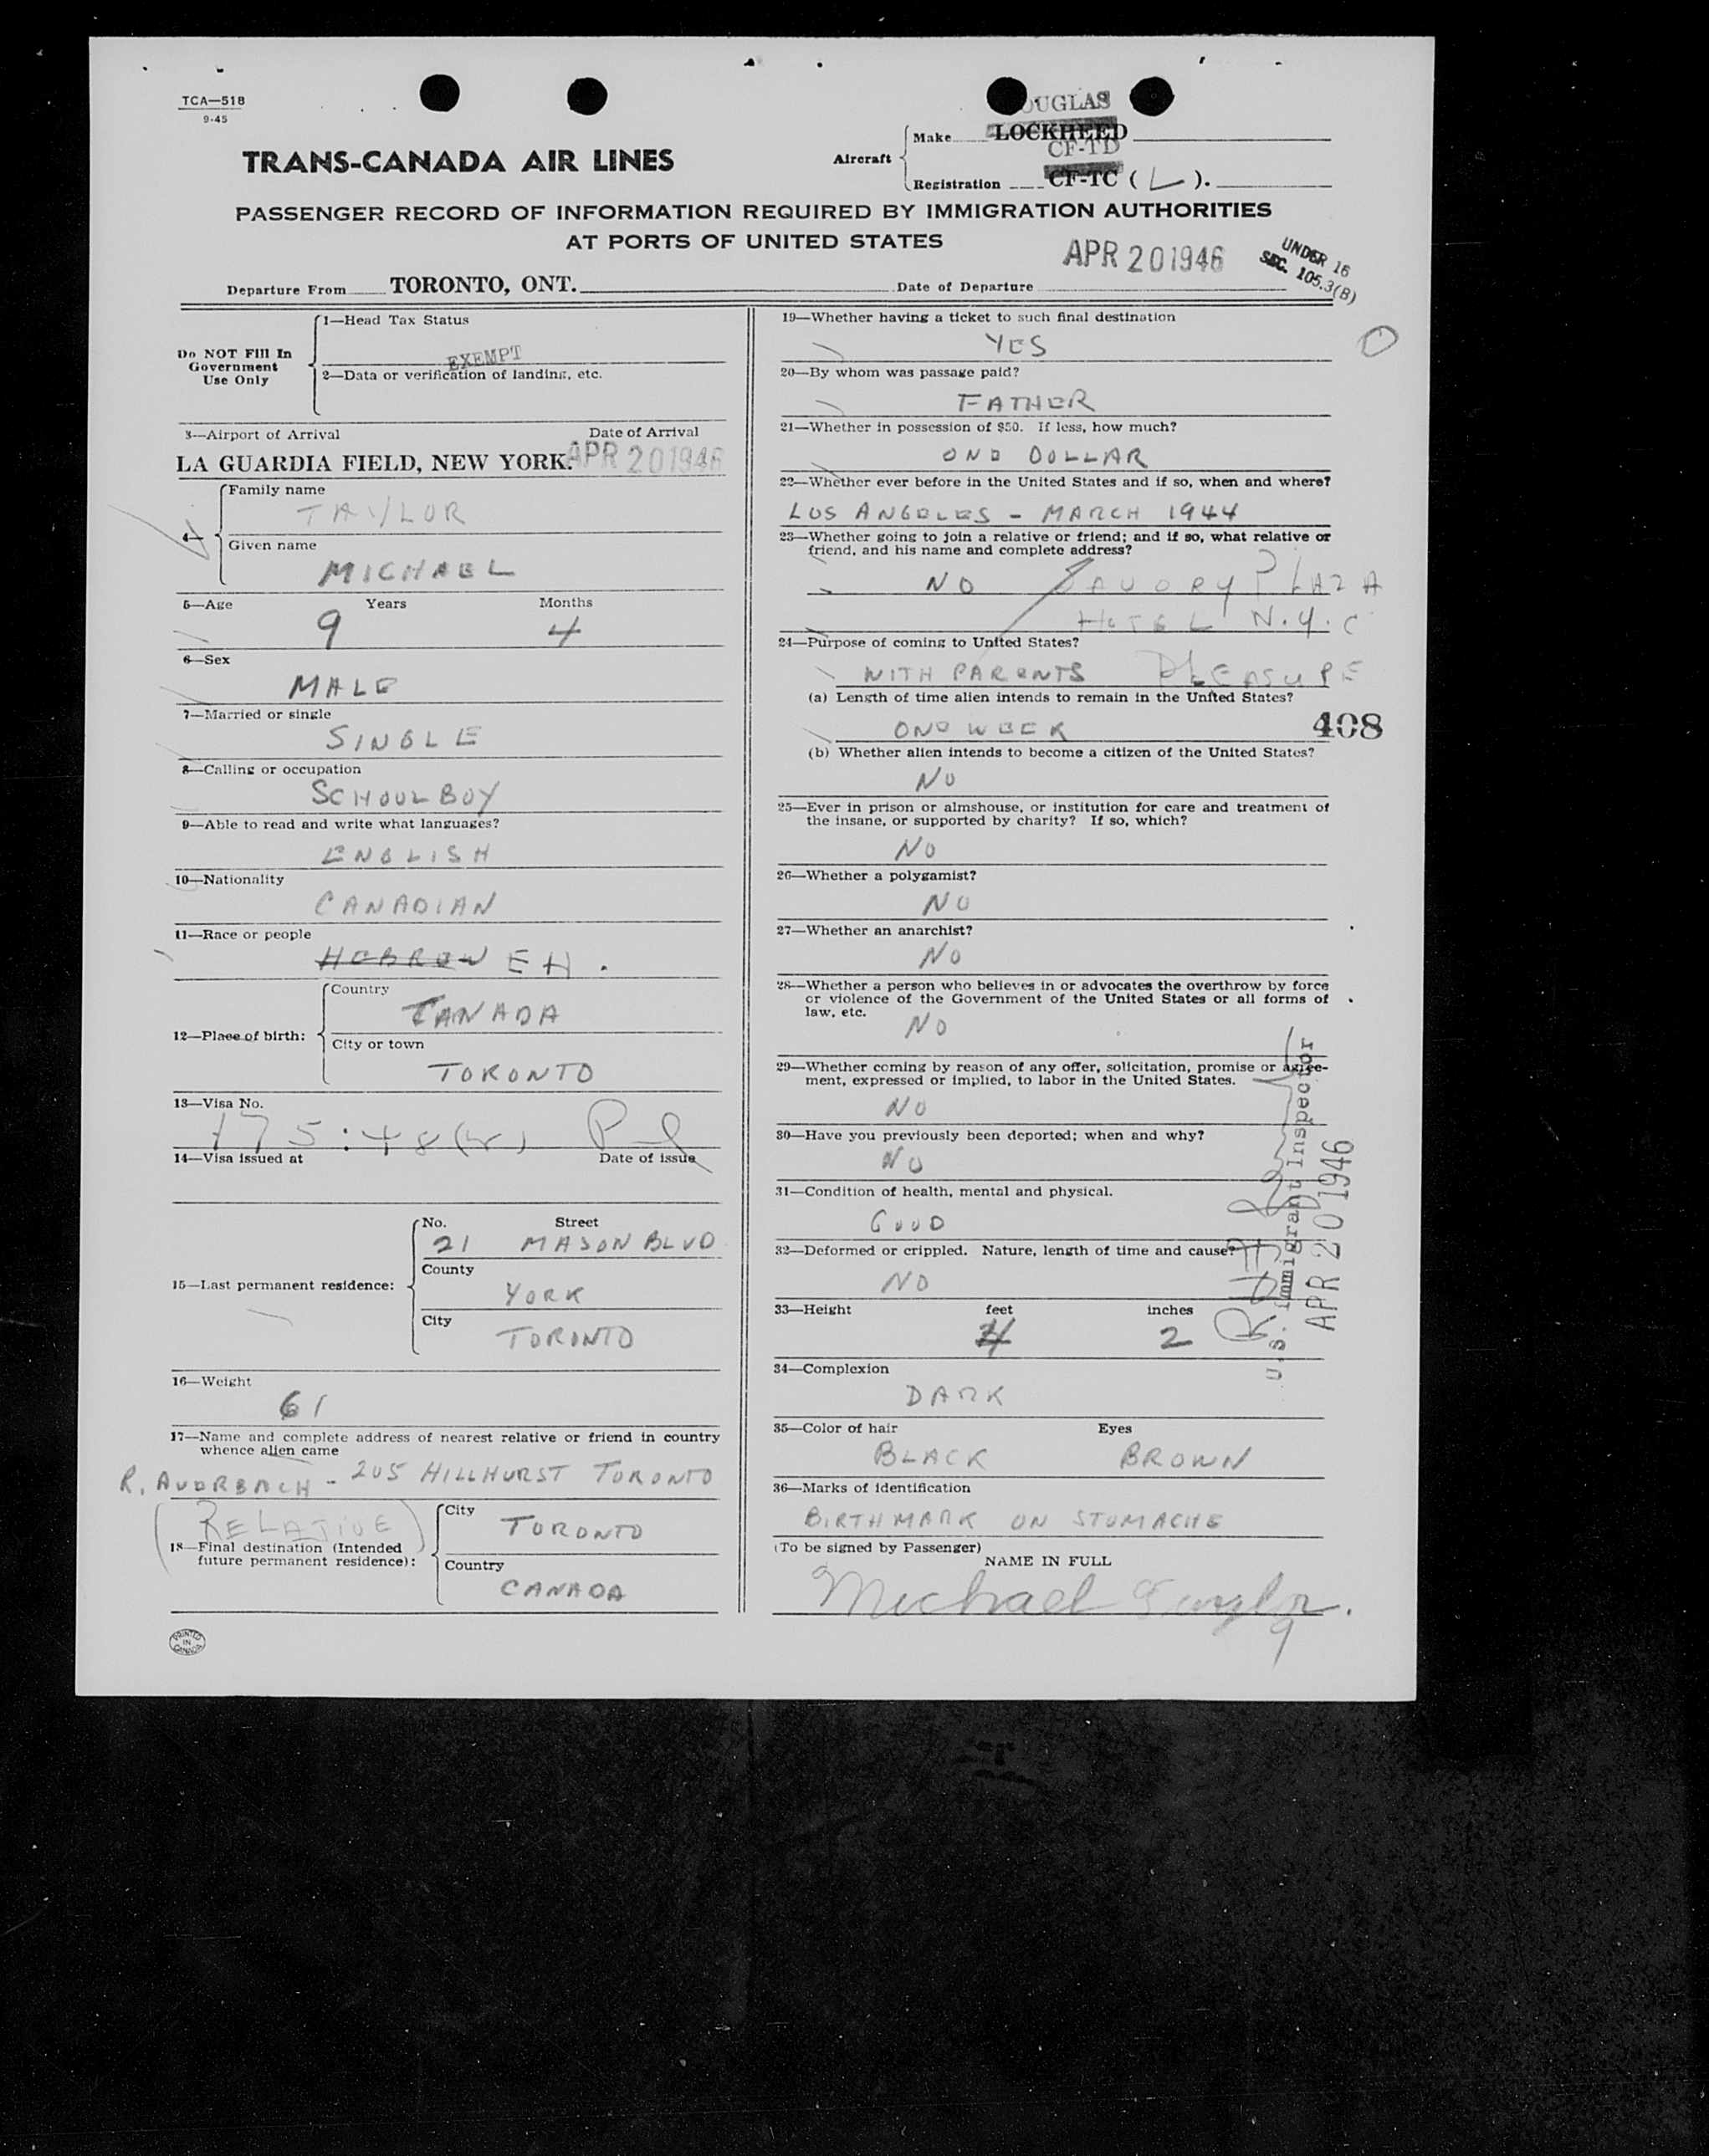 TCA—518
9-45
DOUGLAS
TRANS-CANADA AIR LINES
Aircraft
Make LOCKHEED
CF-TD
Registration CF-TC ( L ).
PASSENGER RECORD OF INFORMATION REQUIRED BY IMMIGRATION AUTHORITIES
AT PORTS OF UNITED STATES
APR 20 1946
UNDER 16
SEC. 105.3(B)
Departure From TORONTO, ONT.
Date of Departure
Do NOT Fill In
Government
Use Only
1—Head Tax Status
EXEMPT
2—Data or verification of landing, etc.
3—Airport of Arrival Date of Arrival
LA GUARDIA FIELD, NEW YORK. APR 20 1946
4—
Family name
TAYLOR
Given name
MICHAEL
5—Age Years Months
9 4
6—Sex
MALE
7—Married or single
SINGLE
8—Calling or occupation
SCHOOLBOY
9—Able to read and write what languages?
ENGLISH
10—Nationality
CANADIAN
11—Race or people
HEBREW EH.
12—Place of birth:
Country
CANADA
City or town
TORONTO
13—Visa No.
175:48(w)
14—Visa issued at Date of issue
15—Last permanent residence:
No. Street
21 MASON BLVD
County
YORK
City
TORONTO
16—Weight
61
17—Name and complete address of nearest relative or friend in country
whence alien came
R. AUERBACH - 205 HILLHURST TORONTO
(RELATIVE)
18—Final destination (Intended
future permanent residence):
City
TORONTO
Country
CANADA
PRINTED
IN
CANADA
19—Whether having a ticket to such final destination
YES
20—By whom was passage paid?
FATHER
21—Whether in possession of $50. If less, how much?
ONE DOLLAR
22—Whether ever before in the United States and if so, when and where?
LOS ANGELES - MARCH 1944
23—Whether going to join a relative or friend; and if so, what relative or
friend, and his name and complete address?
NO SAVORY PLAZA
HOTEL N.Y.C
24—Purpose of coming to United States?
WITH PARENTS PLEASURE
(a) Length of time alien intends to remain in the United States?
ONE WEEK
408
(b) Whether alien intends to become a citizen of the United States?
NO
25—Ever in prison or almshouse, or institution for care and treatment of
the insane, or supported by charity? If so, which?
NO
26—Whether a polygamist?
NO
27—Whether an anarchist?
NO
28—Whether a person who believes in or advocates the overthrow by force
or violence of the Government of the United States or all forms of
law, etc.
NO
29—Whether coming by reason of any offer, solicitation, promise or agree-
ment, expressed or implied, to labor in the United States.
NO
30—Have you previously been deported; when and why?
NO
31—Condition of health, mental and physical.
GOOD
32—Deformed or crippled. Nature, length of time and cause?
NO
33—Height feet inches
4 2
U.S. Immigrant Inspector
APR 20 1946
34—Complexion
DARK
35—Color of hair Eyes
BLACK BROWN
36—Marks of identification
BIRTHMARK ON STOMACHE
(To be signed by Passenger)
NAME IN FULL
Michael Taylor.
9